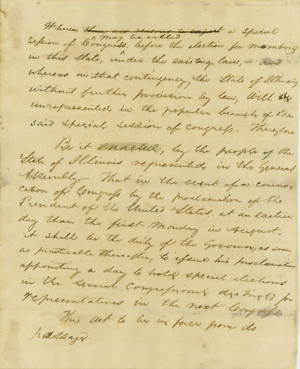 Whereas there are reasons to expect a special
may be called
session of Congress, before the election for members
in this State, under the existing law,— and
whereas in that contingency, the State of Illinois
without further provision by law, will be
unrepresented in the popular branch of the
said special session of congress. Therefore
Be it enacted, by the people of the
State of Illinois represented in the General
Assembly— That in the event of a convocation
cation of Congress by the proclamation of the
President of the United States, at an earlier
day than the first Monday in August,
it shall be the duty of the Governor, as soon
as practicable thereafter, to issue his proclamation
appointing a day to hold special elections
in the several Congressional districts for
representatives in the next Congress
This act to be in force from its
passage